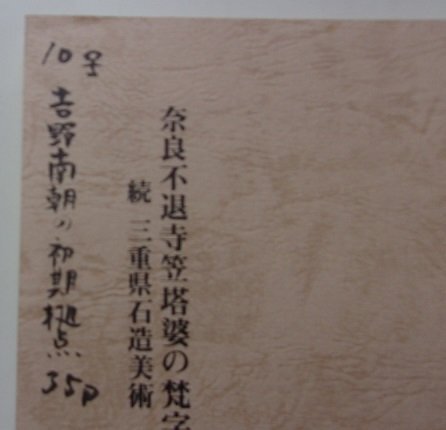 奈良不退寺笠塔婆の梵字
続 三重県石造美術
10号
吉野南朝の初期拠点 35P